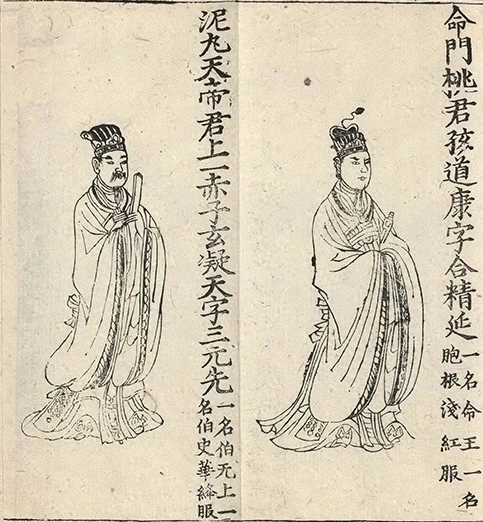 命門桃君孩道康字合精延
一名命王一名
胞根淺紅服
泥丸天帝君上一赤子玄凝天字三元先
一名伯无上一
名伯史華絳服